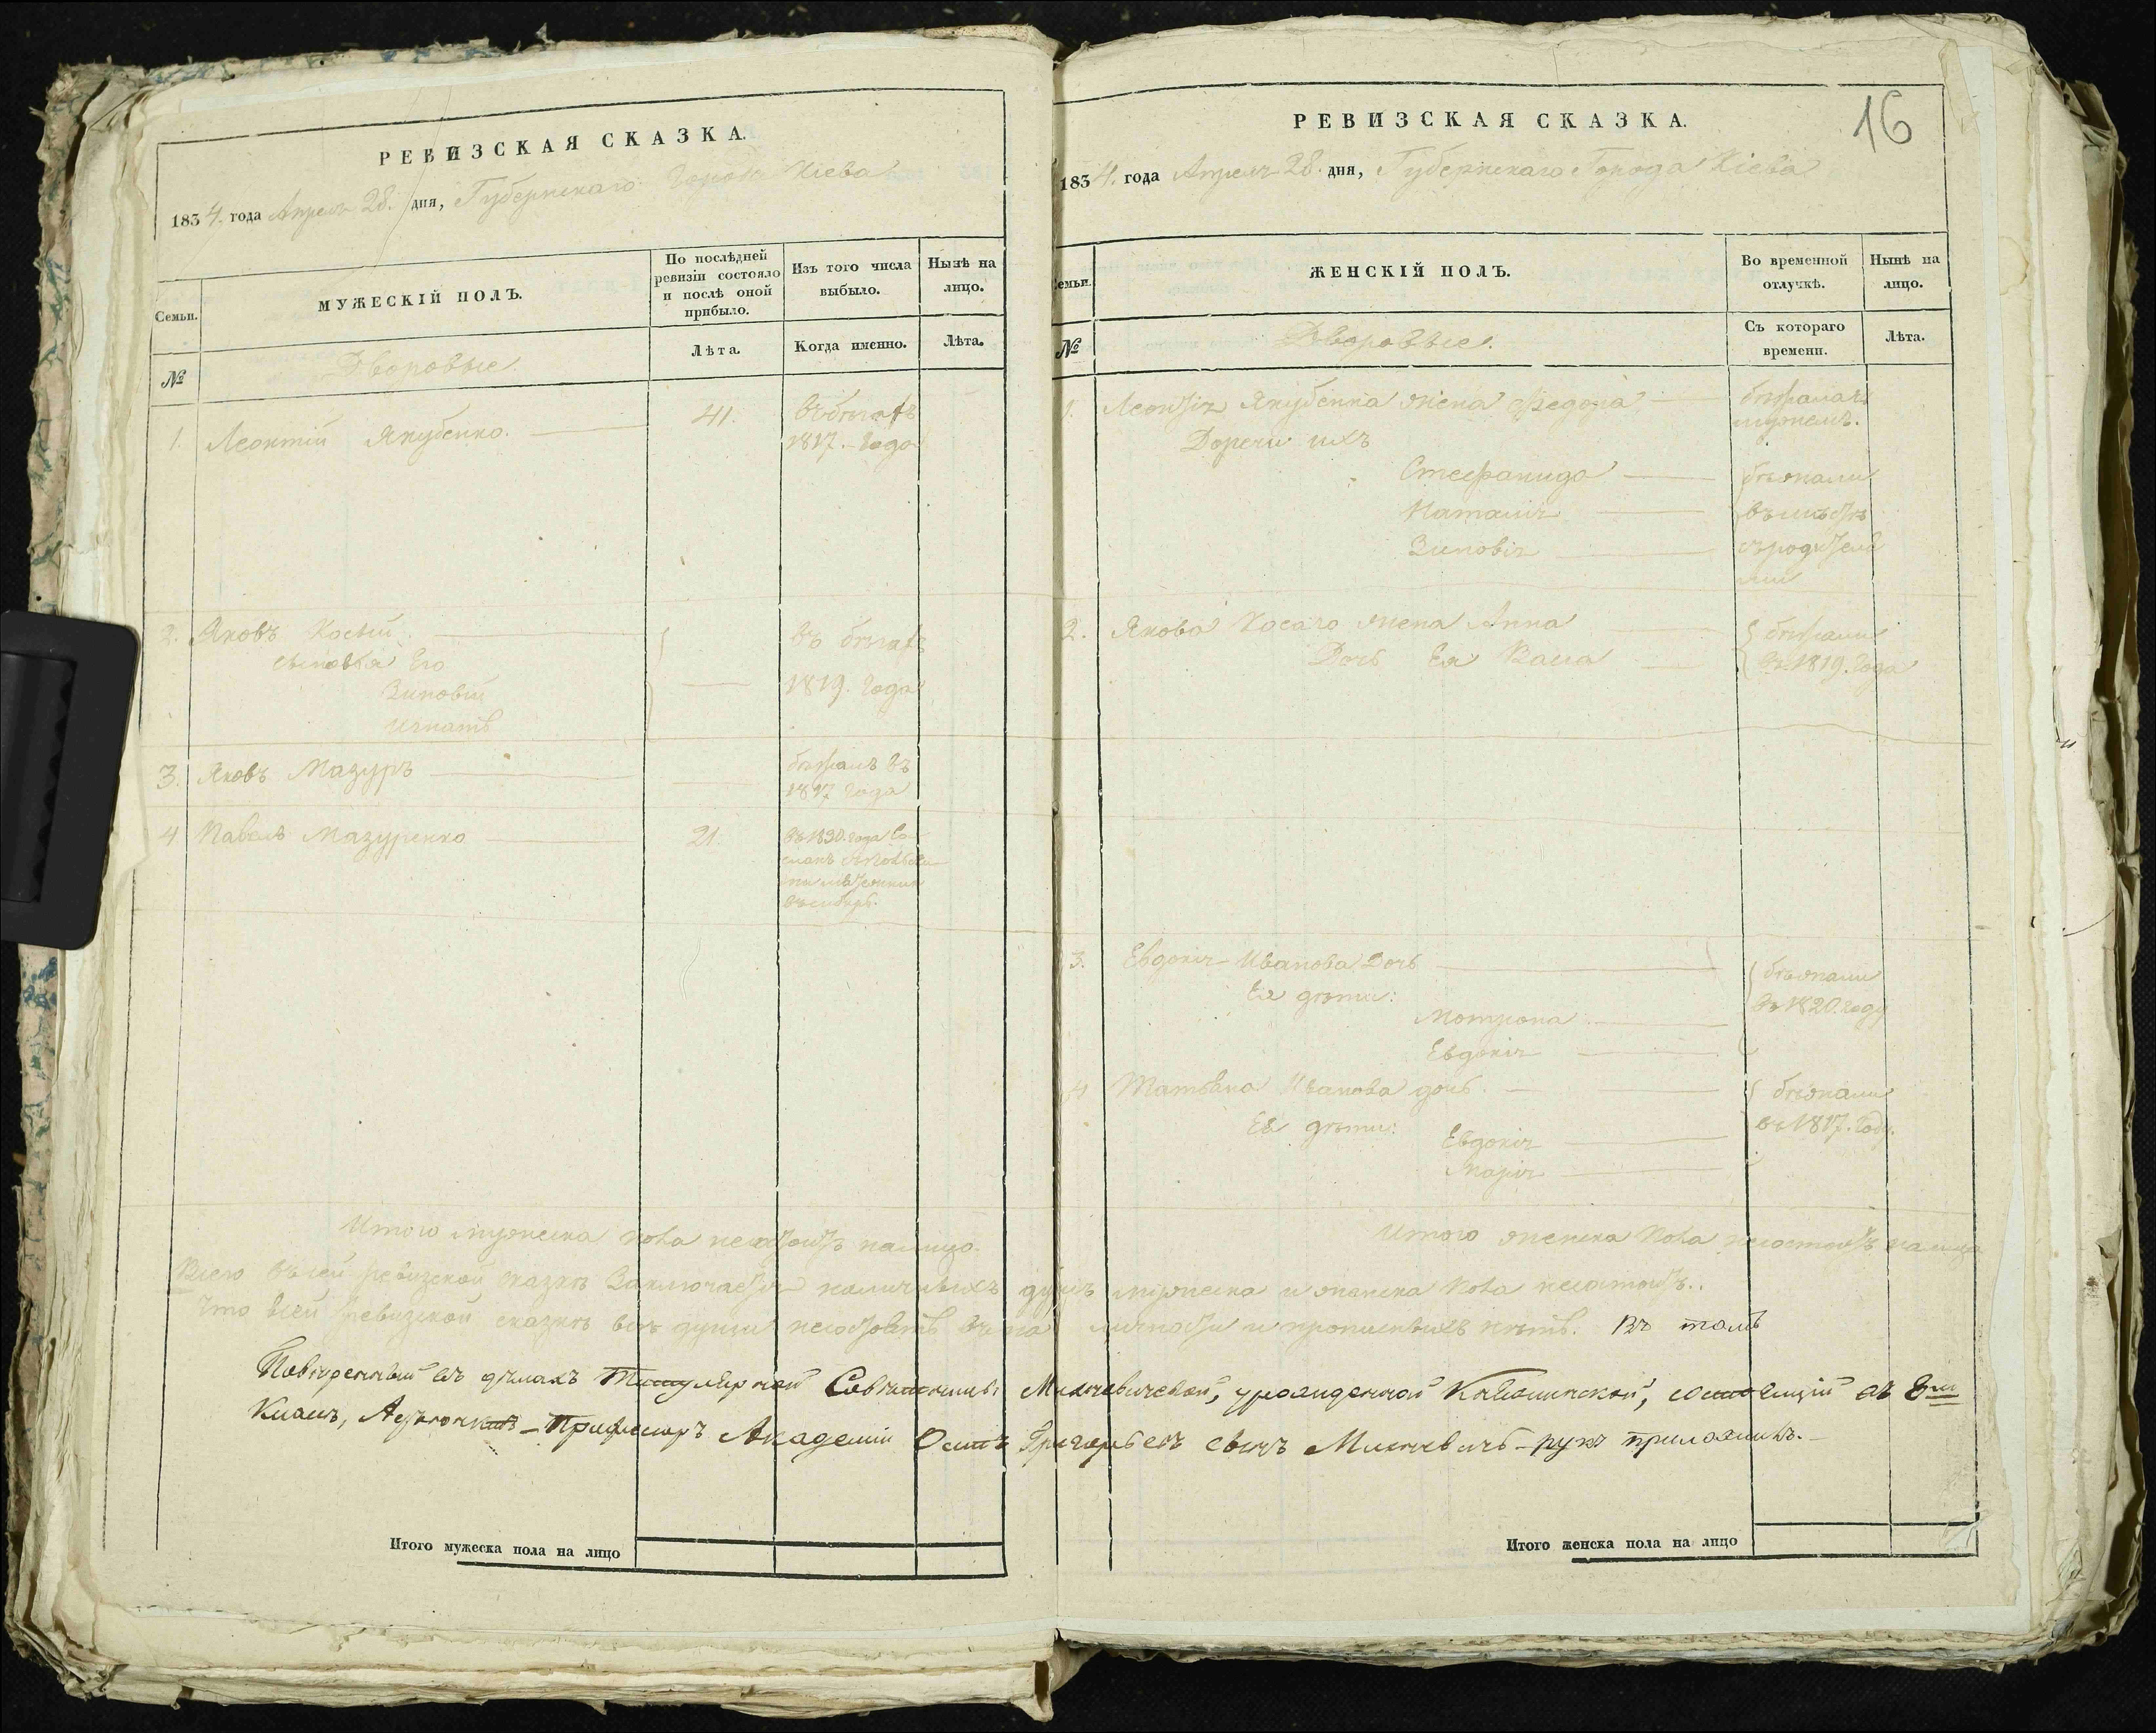 РЕВИЗСКАЯ СКАЗКА.
1834. года Апреля 28. дня, Губернскаго Города Кіева
Семьи.
МУЖЕСКІЙ ПОЛЪ.
По послѣдней ревизіи состояло и послѣ оной прибыло.
Изъ того числа выбыло.
Нынѣ на лицо.
№
Дворовые
Лѣта.
Когда именно.
Лѣта.
1. Леонтій Якубенко. 41. въ бѣгахъ
1817. Года
2. Яковъ Косый въ бѣгахъ
сыновья Его
Зиновій 1819. Года
Игнатъ
3. Яковъ Мазуръ бѣжалъ въ
1817 Года
4 Павелъ Мазуренко 21. въ 1830. года
Итого мужеска пола несостоитъ налицо.
РЕВИЗСКАЯ СКАЗКА.
16
1834. года Апреля 28. дня, Губернскаго Города Кіева
Семьи.
ЖЕНСКІЙ ПОЛЪ.
Во временной отлучкѣ.
Нынѣ на лицо.
№
Дворовые.
Съ котораго времени.
Лѣта.
1. Леонтія Якубенка жена Ѳедора бѣжала съ
мужемъ.
Дочери ихъ
Стефанида бѣжали
Наталія вмѣстѣ
Зиновія съ родителя
ми
2. Якова Косаго жена Анна бѣжали
Дочь Ея Васа въ 1819. Года
3. Евдокія Иванова Дочь бѣжали
Ея дѣти: въ 1820. году
Мотрона
Евдокія
4 Татьяна Иванова дочь. бѣжали
Ея дѣти: въ 1817. Году.
Евдокія
Марія
Итого женска пола несостоитъ налицо
Всего въ сей ревизской сказкѣ Заключается наличныхъ душъ мужеска и женска пола несостоитъ..
Что в сей ревизской сказкѣ всѣ души несостоятъ на личности и прописныхъ нѣтъ. Въ томъ
Повѣренный въ дѣлахъ Титулярной Совѣтницы Михневичевой, урожденной состоящій въ 8мъ
Класѣ, Адъюнктъ-Профессоръ Академіи Осипъ Григорьевъ сынъ Михневичъ руку приложилъ.
Итого мужеска пола на лицо
Итого женска пола на лицо